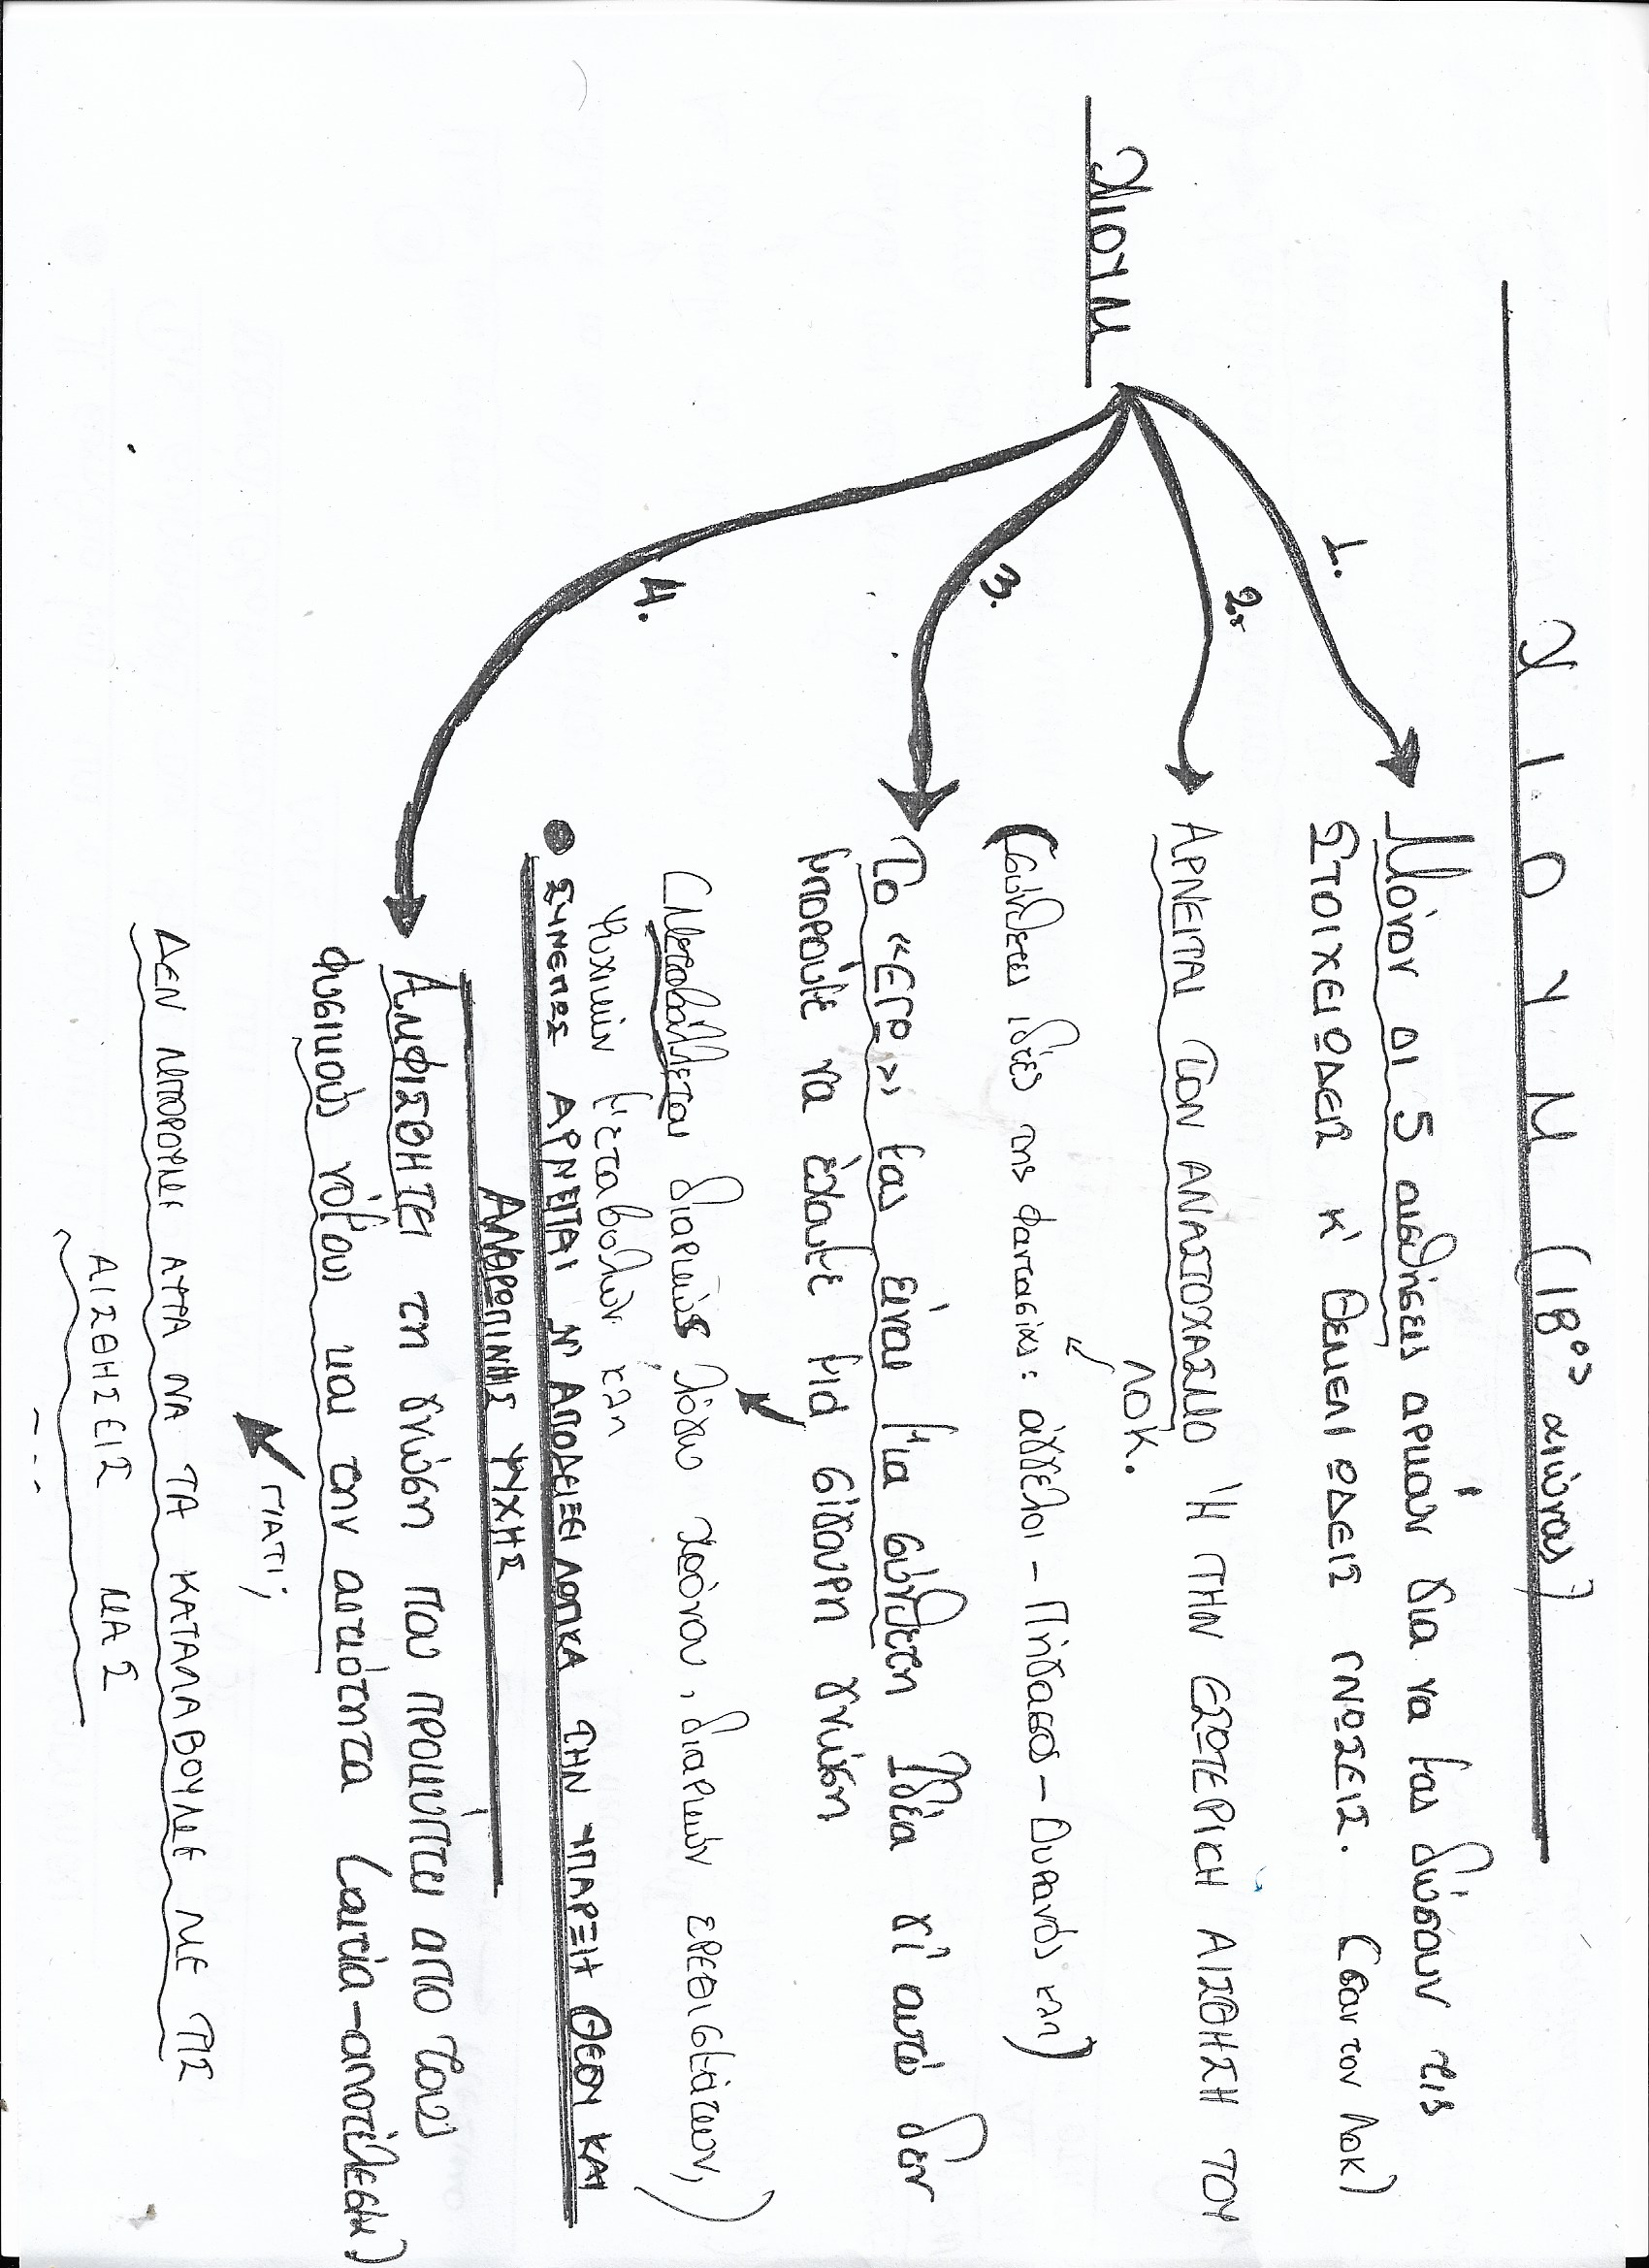 ΧΙΟΥΜ (18ος αιώνας)
ΧΙΟΥΜ
1.
Μόνον οι 5 αισθήσεις αρκούν για να μας δώσουν τις
ΣΤΟΙΧΕΙΩΔΕΙΣ κ' ΘΕΜΕΛΙΩΔΕΙΣ ΓΝΩΣΕΙΣ. (σαν τον Λοκ)
2.
ΑΡΝΕΙΤΑΙ ΤΟΝ ΑΝΑΣΤΟΧΑΣΜΟ Ή ΤΗΝ ΕΣΩΤΕΡΙΚΗ ΑΙΣΘΗΣΗ ΤΟΥ
ΛΟΚ.
(σύνθετες ιδέες της φαντασίας: άγγελοι - Πήγασος - Ουρανός κλπ)
3.
Το «ΕΓΩ» μας είναι μια σύνθετη Ιδέα γι' αυτό δεν
μπορούμε να έχουμε μια σίγουρη γνώση
(Μεταβάλλεται διαρκώς λόγω χρόνου, διαρκών ερεθισμάτων,)
ψυχικών μεταβολών κλπ
● ΣΥΝΕΠΩΣ ΑΡΝΕΙΤΑΙ Ν' ΑΠΟΔΕΙΞΕΙ ΛΟΓΙΚΑ ΤΗΝ ΥΠΑΡΞΗ ΘΕΟΥ ΚΑΙ
ΑΝΘΡΩΠΙΝΗΣ ΨΥΧΗΣ
4.
ΑΜΦΙΣΘΗΤΕΙ τη γνώση που προκύπτει από τους
φυσικούς νόμους και την αιτιότητα (αιτία-αποτέλεσμα)
ΓΙΑΤΙ;
ΔΕΝ ΜΠΟΡΟΥΜΕ ΑΥΤΑ ΝΑ ΤΑ ΚΑΤΑΛΑΒΟΥΜΕ ΜΕ ΤΙΣ
ΑΙΣΘΗΣΕΙΣ ΜΑΣ
---